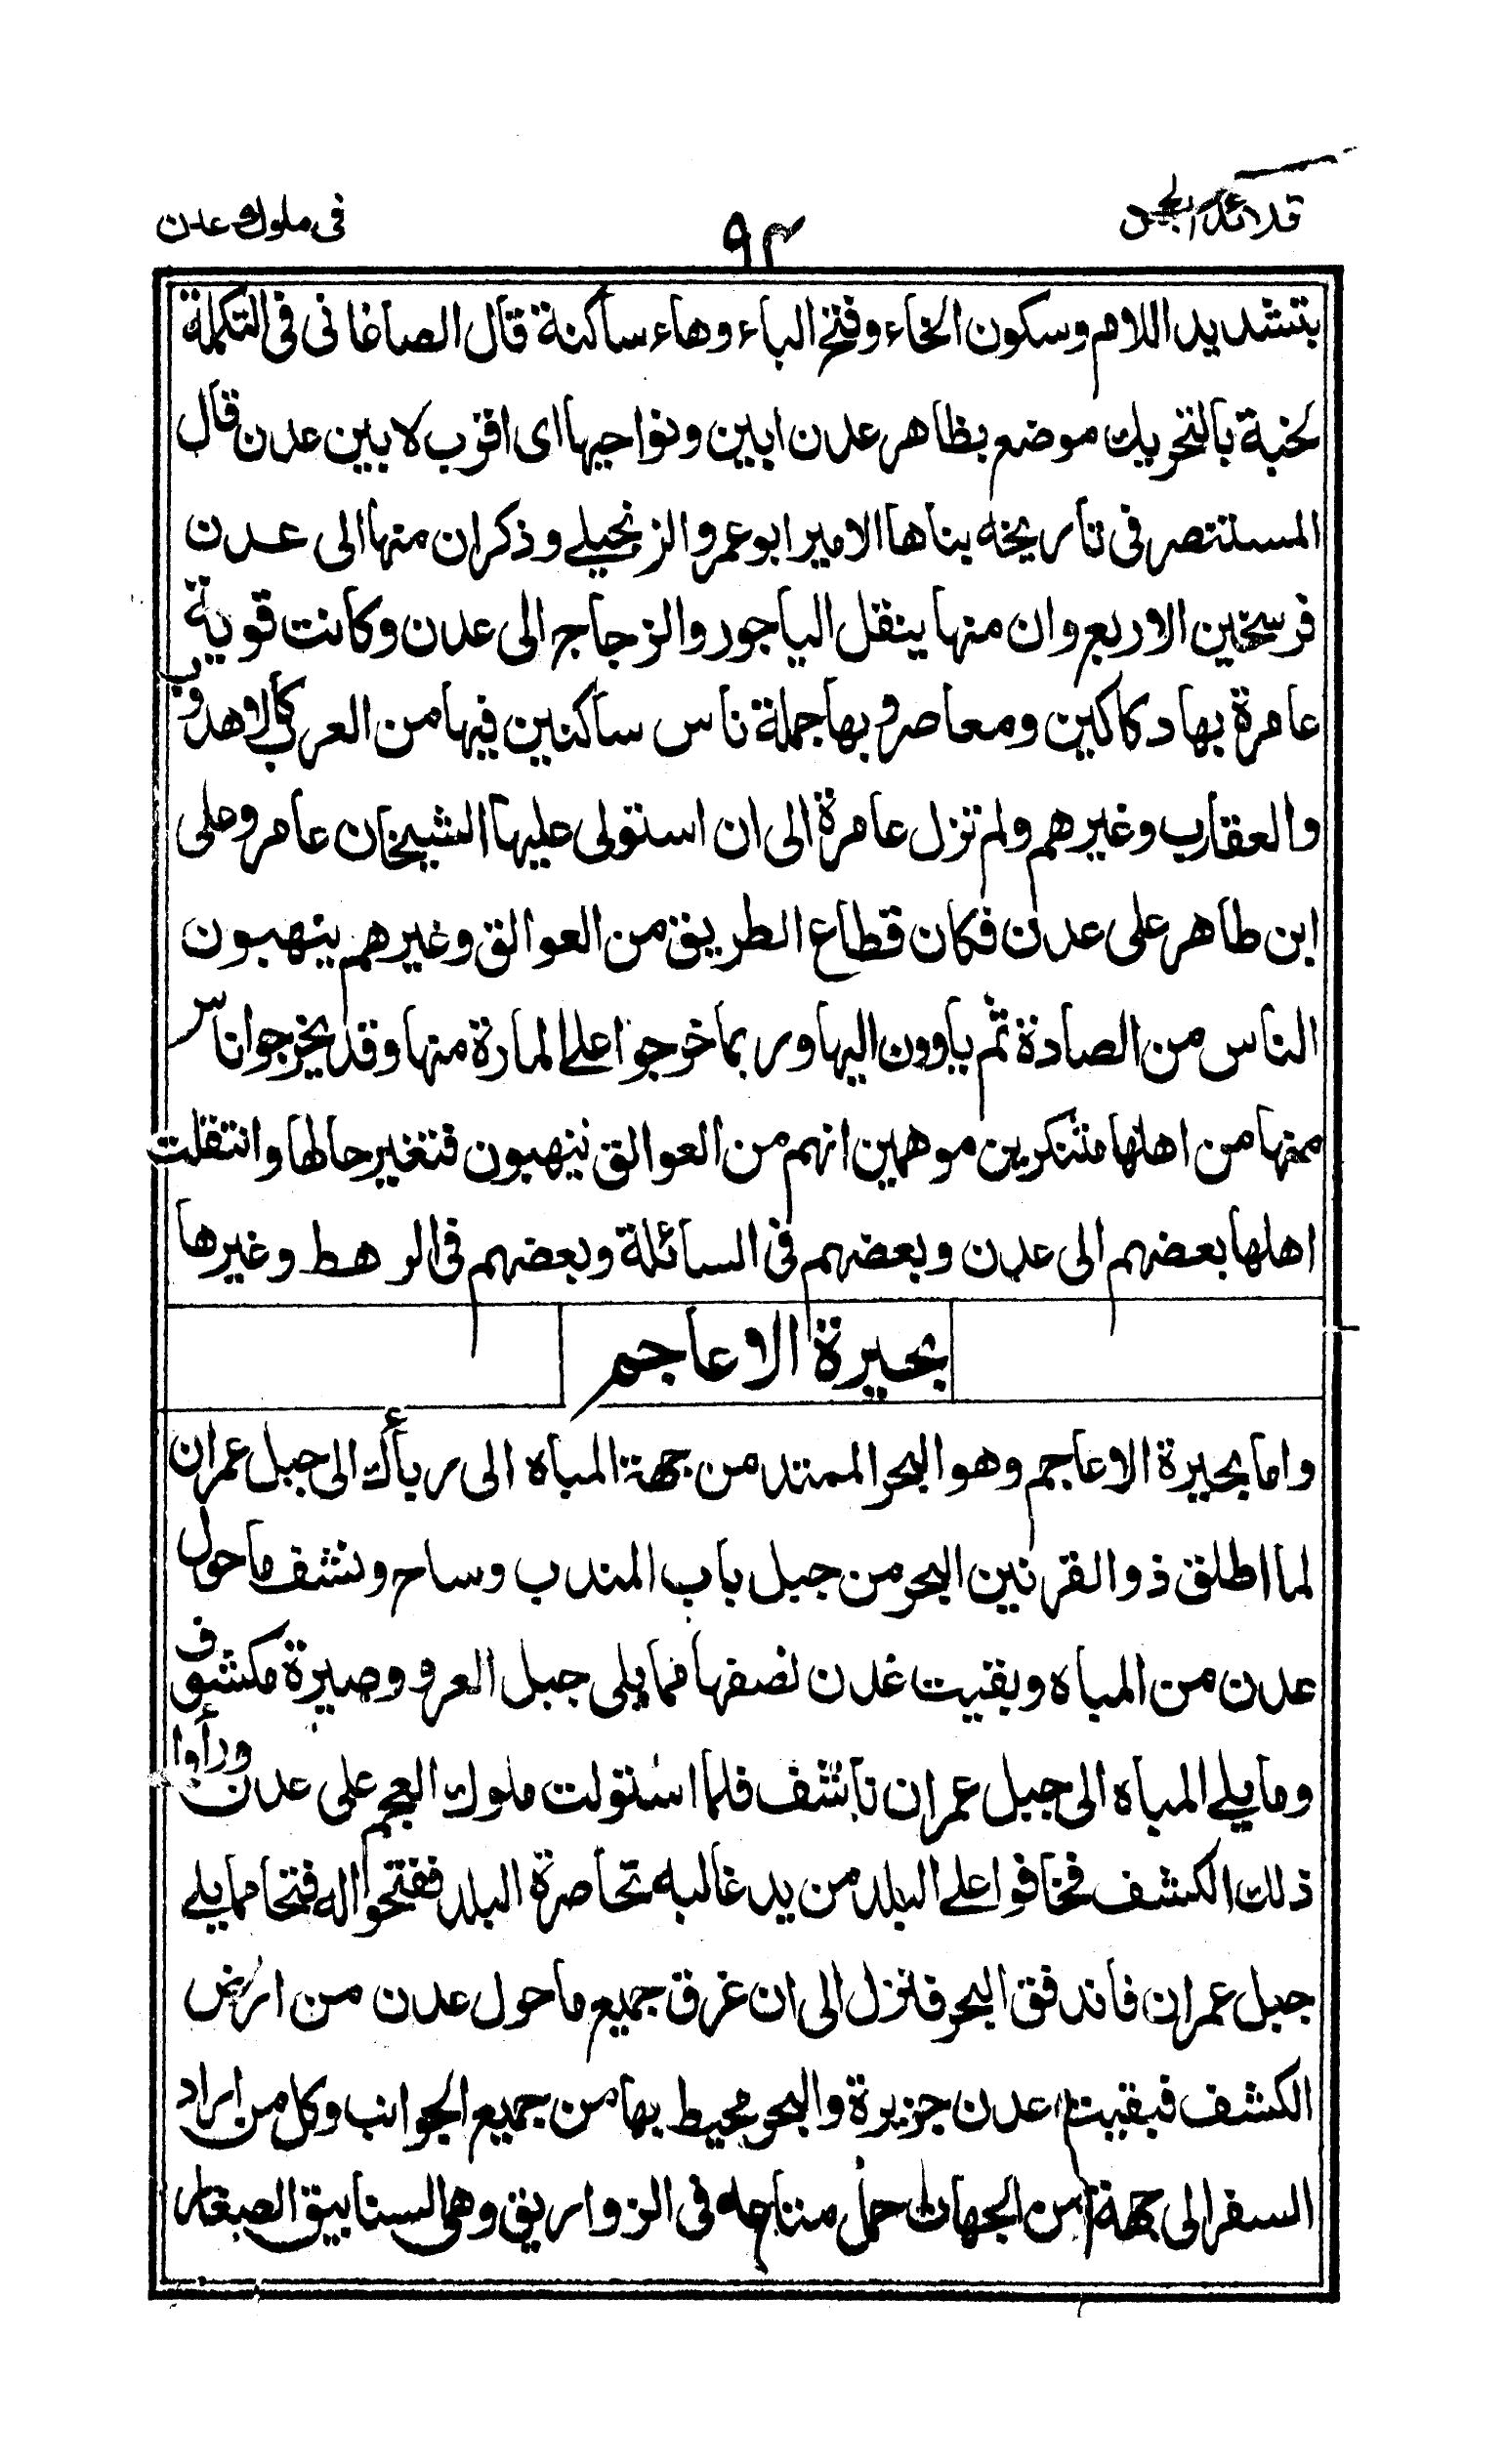 قلائد الجمن
٩٣
فى ملوك عدن
بتشديد اللام وسكون الخاء وفتح الباء وهاء ساكنة قال الصاغانى فى التكملة
لخبة بالتحريك موضع بظاهر عدن ابين ونواحيها اى اقرب لا بين عدن قال
المستنصر فى تاريخه بناها الامير ابو عمرو الزنجيلى وذكر ان منها الى عدن
فرسخين الا ربع وان منها ينقل الياجور والزجاج الى عدن وكانت قوية
عامرة بها دكاكين ومعاصر و بها جملة ناس ساكنين فيها من العرب كالاهدوب
والعقارب وغيرهم ولم تزل عامرة الى ان استولى عليها الشيخان عامر وعلى
ابن طاهر على عدن فكان قطاع الطريق من العوالق وغيرهم ينهبون
الناس من الصادة ثم ياوون اليها وربما خرجوا على المارة منها وقد يخرجوا ناس
منها من اهلها متنكرين موهمين انهم من العوالق ينهبون فتغير حالها وانتقلت
اهلها بعضهم الى عدن وبعضهم فى السائلة وبعضهم فى الرهط وغيرها
بحيرة الاعاجم
واما بحيرة الاعاجم وهو البحر الممتد من جهة المباه الى رباك الى جبل عمران
لما اطلق ذو القرنين البحر من جبل باب المندب وساح ونشف ما حول
عدن من المباه وبقيت غدن نصفها مما يلى جبل العر و وصيرة مكشوف
وما يلى المباه الى جبل عمران ناشف فلما استولت ملوك العجم على عدن ورأوا
ذلك الكشف فخافوا على البلد من يد غالبه تحاصرة البلد ففتحوا له فتحا مما يلى
جبل عمران فاندفق البحر فنزل الى ان غرق جميع ما حول عدن من ارض
الكشف فبقيت عدن جزيرة والبحر محيط بها من جميع الجوانب وكل من اراد
السفر الى جهة من الجهات حمل متاعه فى الزواريق وهى السنابيق الصغار